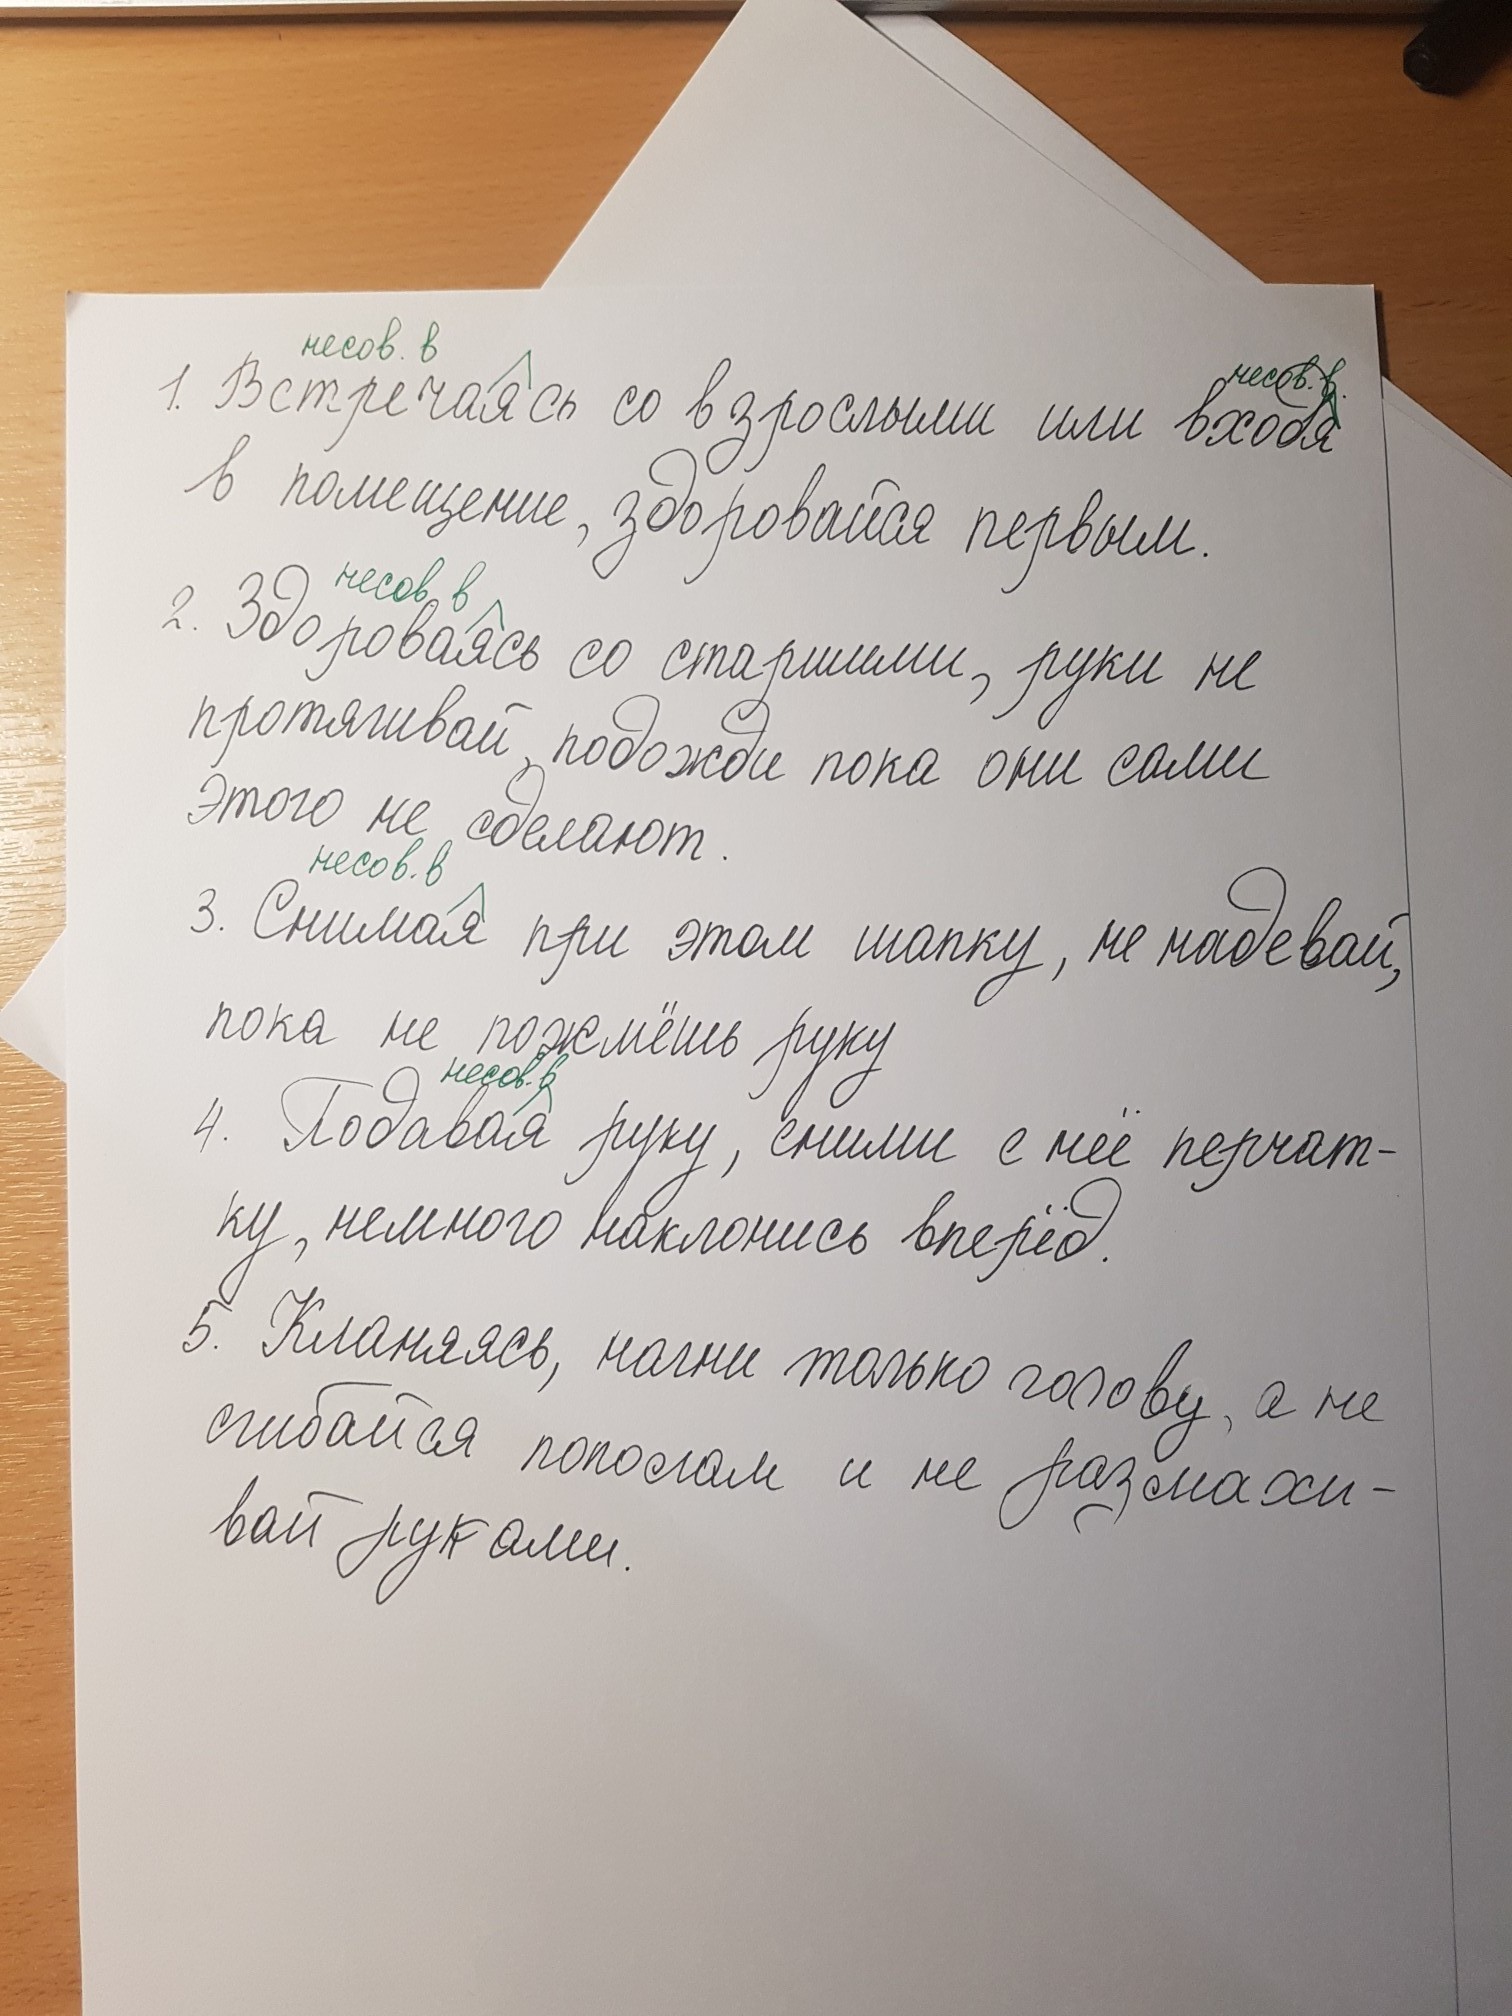 несов. в несов. в.
1. Встречаясь со взрослыми или входя
в помещение, здоровайся первым.
несов. в
2. Здороваясь со старшими, руки не
протягивай, подожди пока они сами
этого не сделают.
несов. в
3. Снимая при этом шапку, не надевай,
пока не пожмёшь руку
несов. в
4. Подавая руку, сними с неё перчат-
ку, немного наклонись вперёд.
5. Кланяясь, нагни только голову, а не
сгибайся пополам и не размахи-
вай руками.